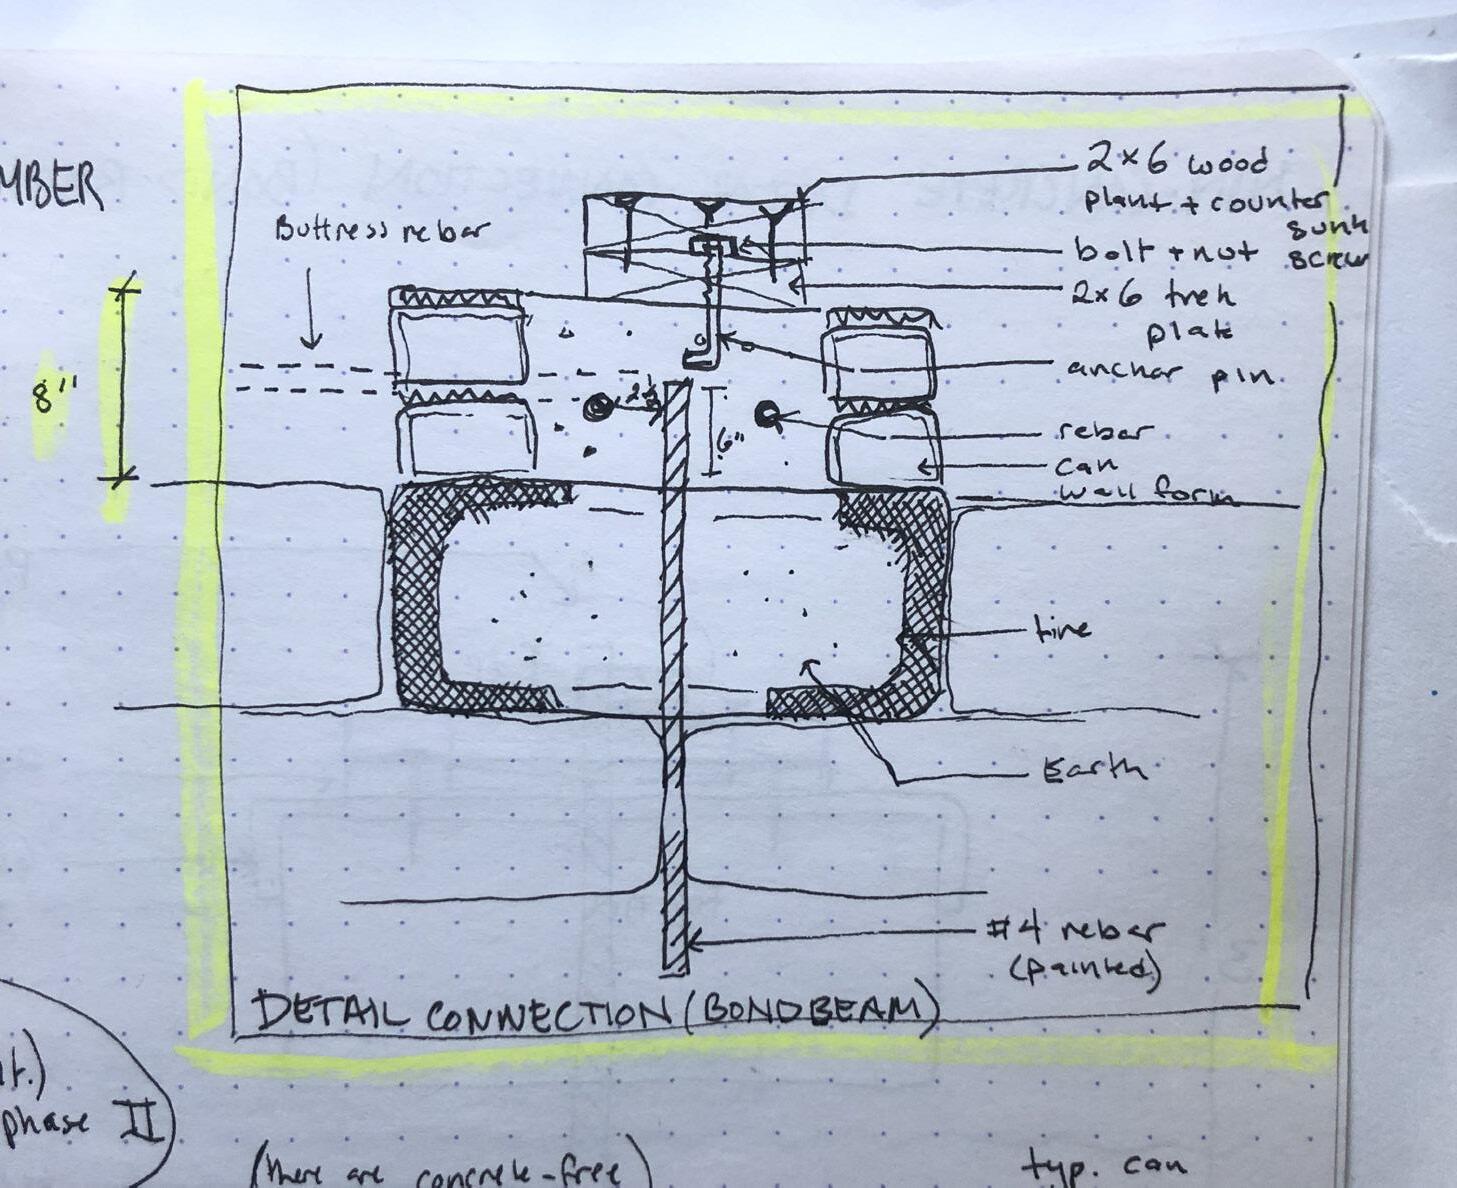 MBER
Buttress rebar
2×6 wood
plant + counter
sunk
screw
bolt + nut
2×6 treh
plate
anchor pin
8"
2½
6"
rebar
can
wall form
tire
Earth
#4 rebar
(painted)
DETAIL CONNECTION (BONDBEAM)
lt.)
phase II
(there are concrete-free)
typ. can